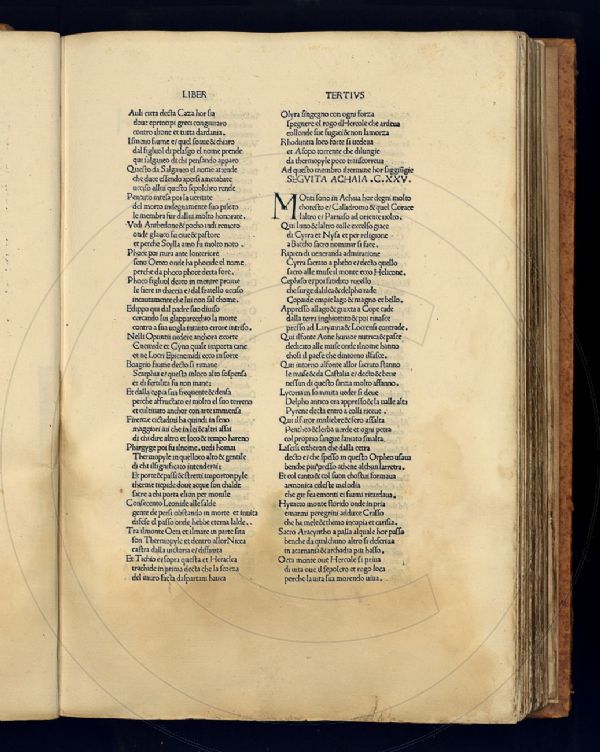 LIBER
Auli citta decta Caza hor sia
doue eprincipi greci congiuraro
contro alione et tutta dardania.
Ismeno fiume e/ quel soaue & chiaro
dal figluol di pelasgo el nome prende
qui salganeo di chi pensando apparo
Questo da Salganeo el nome attende
che duce essendo apersi ametabate
ucciso allui questo sepolchro rende
Pentuto intesa poi la ueritate
del morto indegnamente suo piloto
le membra fur dallui molto honorate.
Vedi Anthedone & pocho indi remoto
onde glauco fu ciue & pastore
et perche Scylla amo fu molto noto.
Phoce poi mira ante lonteriore
seno Oeteo onde ha phocide el nome
perche da phoco phoce decta fore.
Phoco figluol deteo in mentre prome
le fiere in dhaccia e/ dal fratello ucciso
incautamente che lui non sal chome.
Edippo qui dal padre suo diuiso
cercando lui glapparecchio la morte
contro a sua uoglia intuito errore intriso.
Nelli Opuntii uedere anchora exorte
Cinemide et Cyno quale importa cane
et ne Locri Epicnemidi ecco insorte
Boagrio fiume decto si rimane
Scarphia e/ questa inloco alto sospensa
et di fertilita fu non mane:
Et dalla copia sua frequente & densa
perche affructato e/ molto el suo terreno
et cultiuato anchor con arte immensa
Fineeac cictadini ha quindi in seno
maggiori iui che in lei & altri assai
di chi dire altro et loco & tempo hareno
Phargyge poi fu silnome. uedi homai
Thermopyle in quelloco alto & gentile
di chi ilsignificato intenderai:
Et porte & passi & stretti importon pyle
therme tiepide doue acque son chalde
sacre a chi porta elion per monile
Consecrento Leonide alle salde
gente de persi obstando in morte et inuita
difese el passo onde hebbe eterna lalde.
Tra ilmonte Oeta et ilmare in parte sita
son Thermopyle et dentro allor Nicea
castra dalla uictoria e/ diffinita
Et Tichio e/ sopra questa et Heraclea
trachide in prima decta che la scorza
del tauro facta da spartani hauea
TERTIVS
Olyra singegno con ogni forza
spegnere el rogo dHercole che ardeua
collonde sue fugaci & non la morza
Rhoduntia loco forte si uedeua
et Asopo torrente che dilungie
da thermopyle poco transcorreua
Ad questo membro iltermine hor saggiugie
SEGVITA ACHAIA .C.XXV.
MOnti sono in Achaia hor degni molto
choresto e/ Callidromo & quel Corace
laltro e/ Parnaso ad oriente molto.
Qui luno & laltro colle excelso giace
di Cyrra et Nysa et per religione
a Baccho sacro nominar si face.
Ripien di ueneranda admiratione
Cyrra sacrato a phebo e/ decto quello
sacro alle muse il monte ecco Helicone.
Cephiso e/ poi fatidico ruscello
che surge dalilea & delpho rade
Copaide empie lago & magno et bello.
Appresso allago & giuxta a Cope cade
dalla terra inghiottito & poi rinasce
presso ad Larymna & Locrensi contrade.
Qui ilfonte Aone hauute nutrica & pasce
dedicato alle muse onde ilnome hanno
chosi il paese che dintorno illasce.
Qui intorno alfonte allor sacrato stanno
le muse & ela Castalia e/ decto & bene
nessun di questi sanza molto affanno.
Lycoria in somnita ueder si deue
Delpho antico era appresso & la ualle alta
Pyrene decta entro a colli riceue.
Qui ilfuror maliebre & fero assalta
Pentheo & lerba uarde et ogni petra
col proprio sangue laniato smalta.
Lasceis citheron che dalla cetra
decto e/ che spesso in questo Orpheo usaua
benche piu presso athene alchun larretra.
Et col canto & col suon chostui formaua
armonica celeste melodia
che gre sea emonti et fiumi ritardaua.
Hyneto monte florido onde in pria
emarmi peregrini adduce Crasso
che ha mele & chimo incopia et carissia.
Sacro Aracyntho a palla alquale hor passo
benche da qualchuno altro si descriua
in acarnania & archadia piu basso.
Octa monte oue Hercole si priua
di uita oue il sepolcro et rogo loca
perche la uita sua morendo uiua.